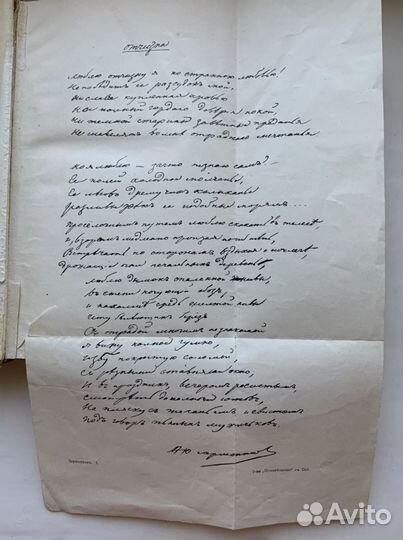 отчизна
люблю отчизну я но странною любовью!
Не победит ее рассудок мой,
Ни слава купленная кровью
Ни полный гордаго доверия покой,
Ни темной старины заветныя преданья
Не шевелят во мне отраднаго мечтанья
Но я люблю — за что не знаю сам? —
Ее полей холодное молчанье,
Ее лесов дремучих колыханье
Разливы рек ее подобные морям...
проселочным путем люблю скакать в телеге,
И, взором медленно пронзая ночи тень,
Встречать по сторонам, вздыхая о ночлеге,
Дрожащие огни печальных деревень,
люблю дымок спаленной жнивы,
В степи кочующий обоз,
И на холме средь желтой нивы
Чету белеющих берёз
С отрадой многим незнакомой
Я вижу полное гумно,
избу покрытую соломой,
С резными ставнями окно,
И в праздник, вечером росистым,
Смотреть до полночи готов,
На пляску с топаньем и свистом
Под говор пьяных мужичков.
М Ю Лермонтов
Лермонтовъ, I.
Т-во
въ Спб.
Avito